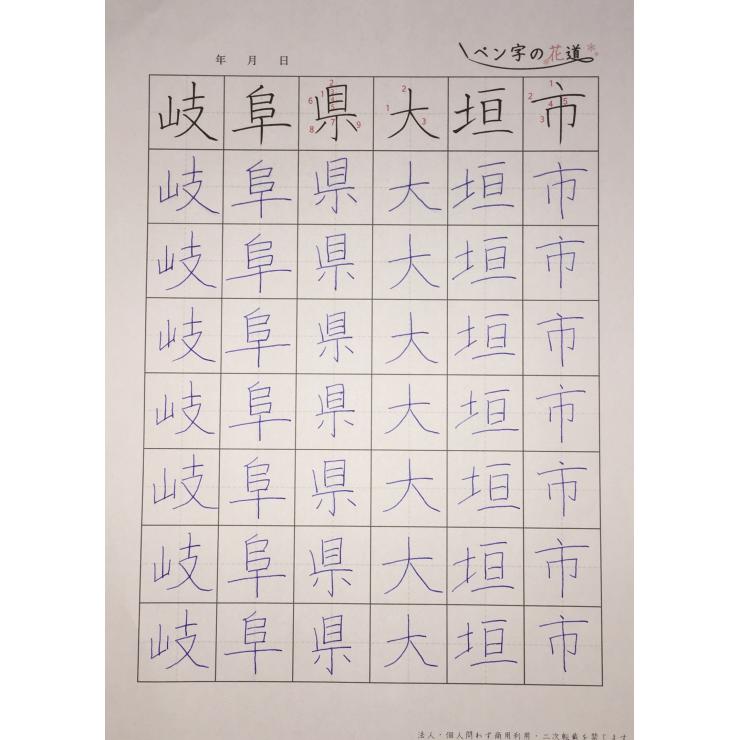 年 月 日
ペン字の花道
岐阜県大垣市
2
1
6
3
4
5
7
8
9
2
1
3
1
2
4
5
3
岐阜県大垣市
岐阜県大垣市
岐阜県大垣市
岐阜県大垣市
岐阜県大垣市
岐阜県大垣市
岐阜県大垣市
法人・個人問わず商用利用・二次転載を禁じます